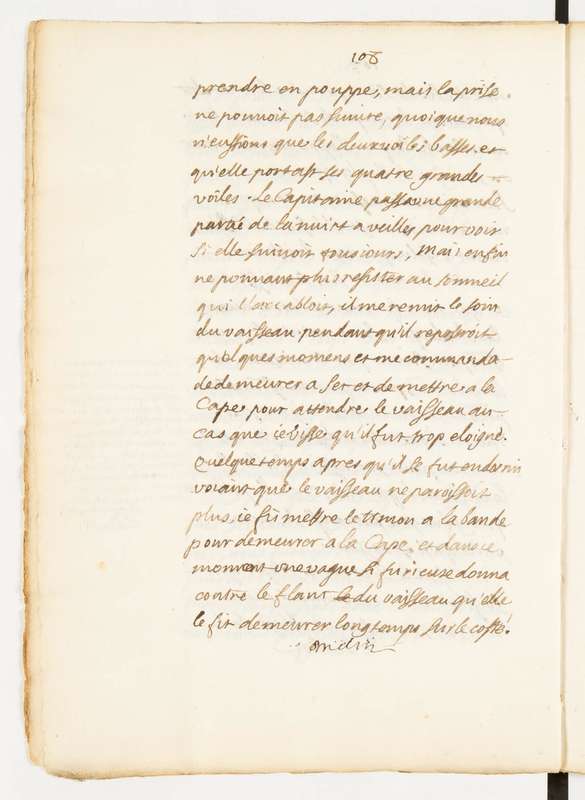 108
prendre en pouppe, mais la prise
ne pouvoit pas suivre, quoique nous
n'eussions que les deux voiles basses et
qu'elle portast ses quatre grandes
voiles. Le Capitaine passa une grande
partie de la nuict a veiller pour voir
si elle suivoit tousiours, mais enfin
ne pouvant plus resister au sommeil
qui l'accabloit, il me remit le soin
du vaisseau pendant qu'il reposeroit
quelques momens et me commanda
de demeurer a ser et de mettre a la
Cape pour attendre le vaisseau au
cas que ie visse qu'il fut trop eloigné.
Quelque temps apres qu'il se fut endormi
voiant que le vaisseau ne paroissoit
plus, ie fis mettre le timon a la bande
pour demeurer a la Cape, et dans ce
moment une vague si furieuse donna
contre le flanc du vaisseau qu'elle
le fit demeurer long temps sur le costé.